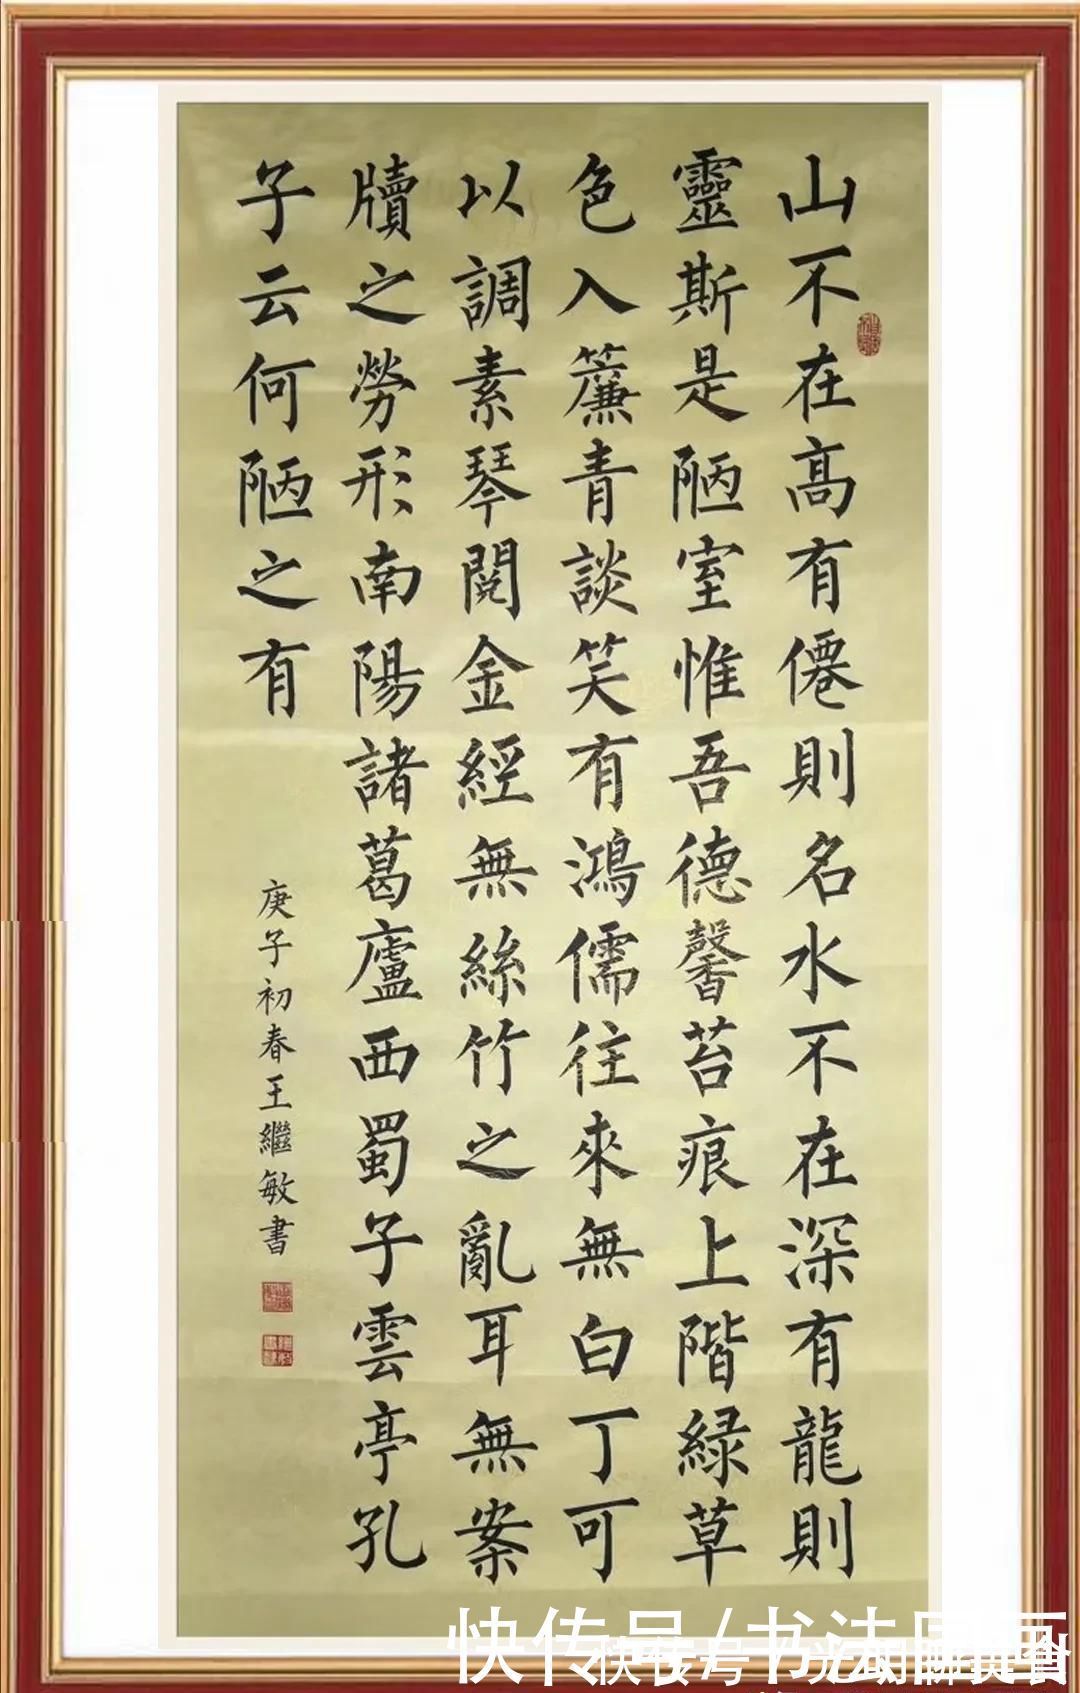 山不在高有僊則名水不在深有龍則
靈斯是陋室惟吾德馨苔痕上階緑草
色入簾青談笑有鴻儒往來無白丁可
以調素琴閱金經無絲竹之亂耳無案
牘之勞形南陽諸葛廬西蜀子雲亭孔
子云何陋之有
庚子初春王繼敏書
快传号/书法国画